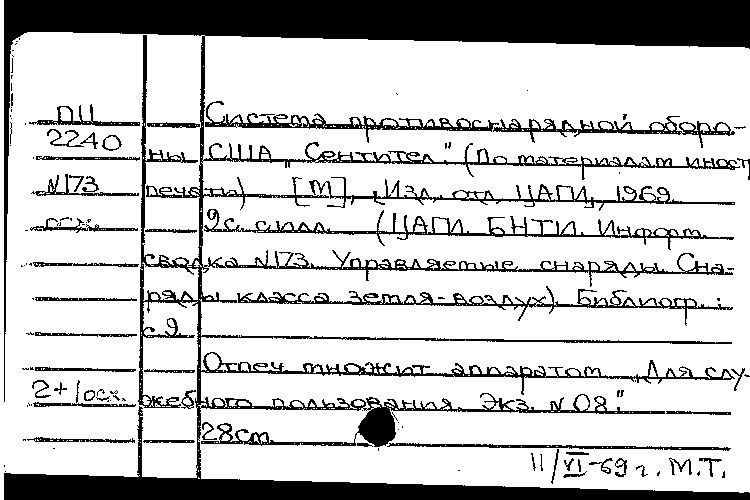 ПЦ Система противоснарядной оборо-
2240 ны США „Сентител". (По материалам иностр
N173 печати) [М], „Изд. отд. ЦАГИ", 1969.
осх. 9с. с илл. (ЦАГИ. БНТИ. Информ.
сводка N173. Управляемые снаряды. Сна-
ряды класса земля-воздух). Библиогр.:
с 9
Отпеч. множит. аппаратом. „Для слу-
2+1осх. жебного пользования. Экз. N 08".
28см.
11/VI-69 г. М.Т.